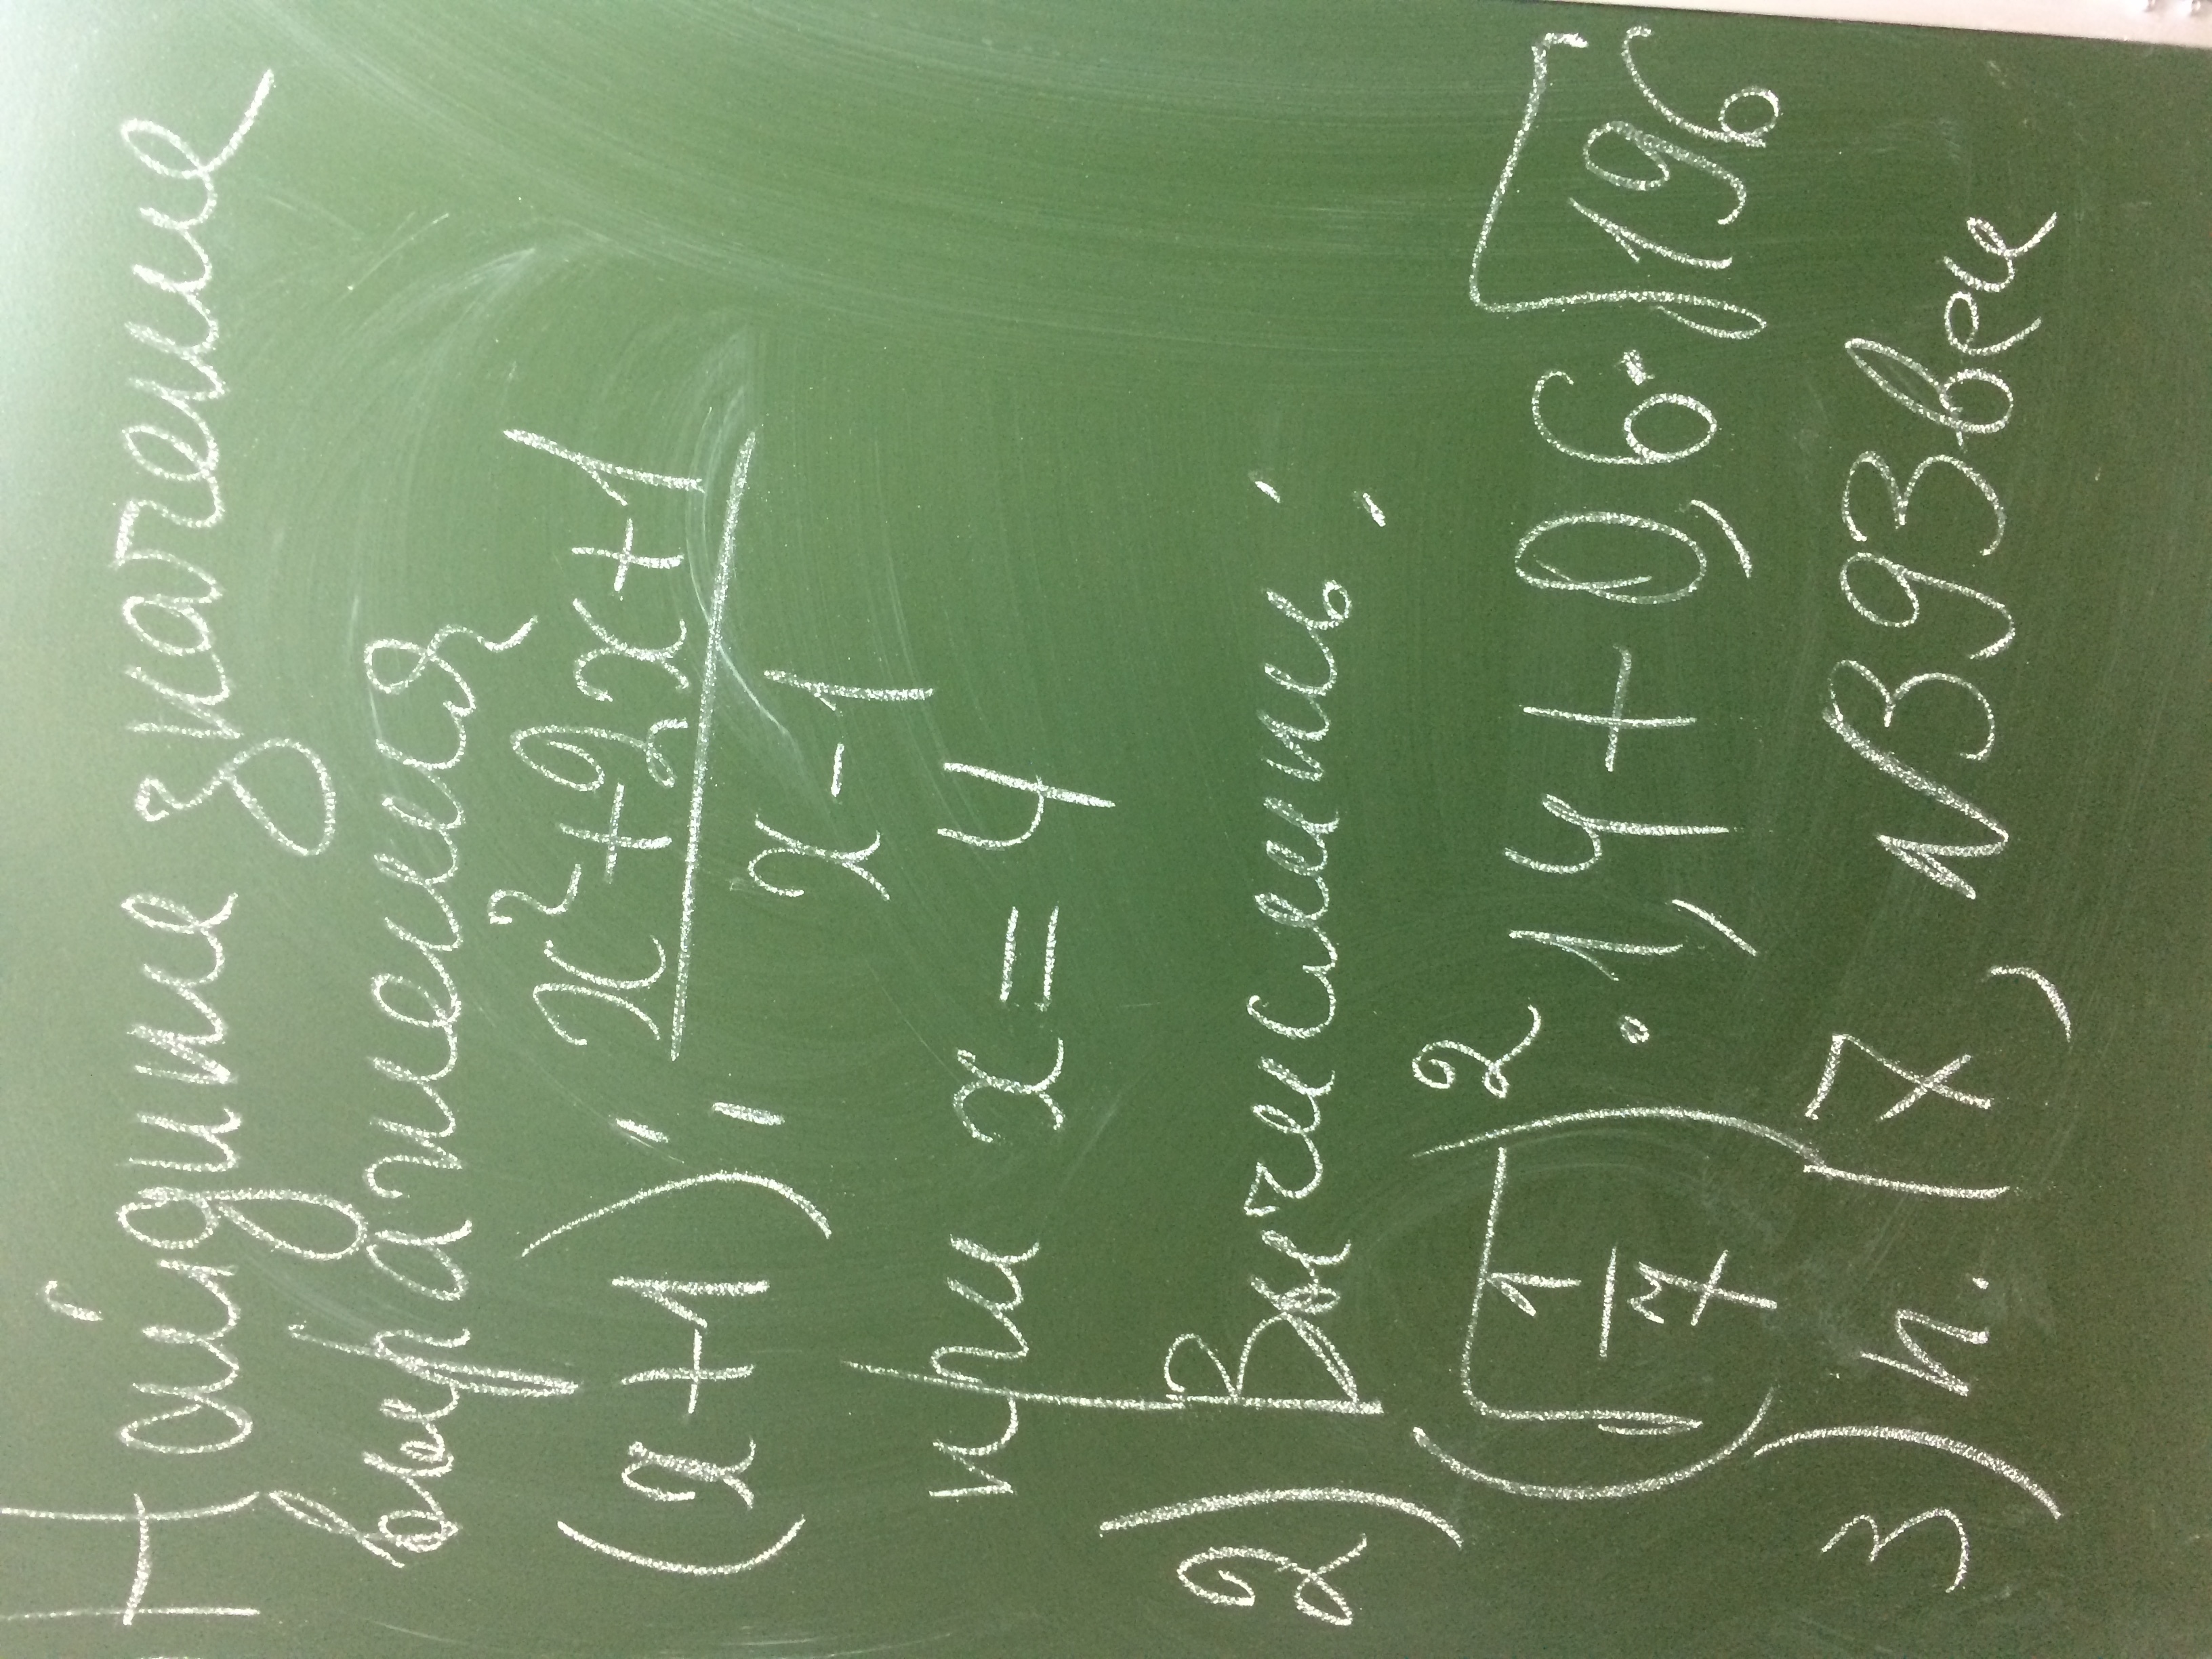 ) Найдите значение
выражения
(x+1) : \frac{x²+2x+1}{x-1}
при x = 4
2) Вычислить:
(√\frac{1}{7})² · 1,4 + 0,6 · √196
3) п. 17, №393